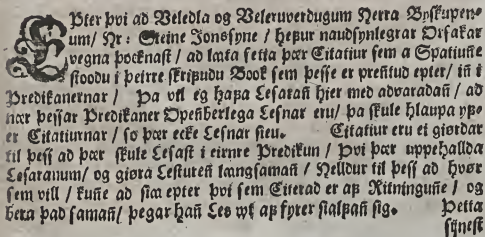 Epter þvi ad Veledla og Veleruverdugum Herra Byskupen-
um/ Hr: Steine Jonssyne/ hefur naudsynlegrar Orsakar
vegna þocknast/ ad láta setta þær Citatiur sem a Spatiunne
stoodu i þeirre skripudu Book sem þesse er prentud epter/ iñ i
Predikanernar/ Þa vil eg hafa Lesarañ hier med advaradañ/ ad
nær þessar Predikaner Openberlega Lesnar eru/ þa skule hlaupa yf-
er Citatiurnar/ so þær ecke Lesnar sieu. Citatiur eru ei giordar
til þess ad þær skule Lesast i eirnre Predikun/ Þvi þær uppehallda
Lesaranum/ og giøra Lesturen langsamañ/ Helldur til þess ad hvør
sem vill/ kunne ad siá epter þvi sem Citerad er af Ritningunne/ og
bera þad samañ/ þegar hañ Les vt af fyrer sialfañ sig. Þetta
synest